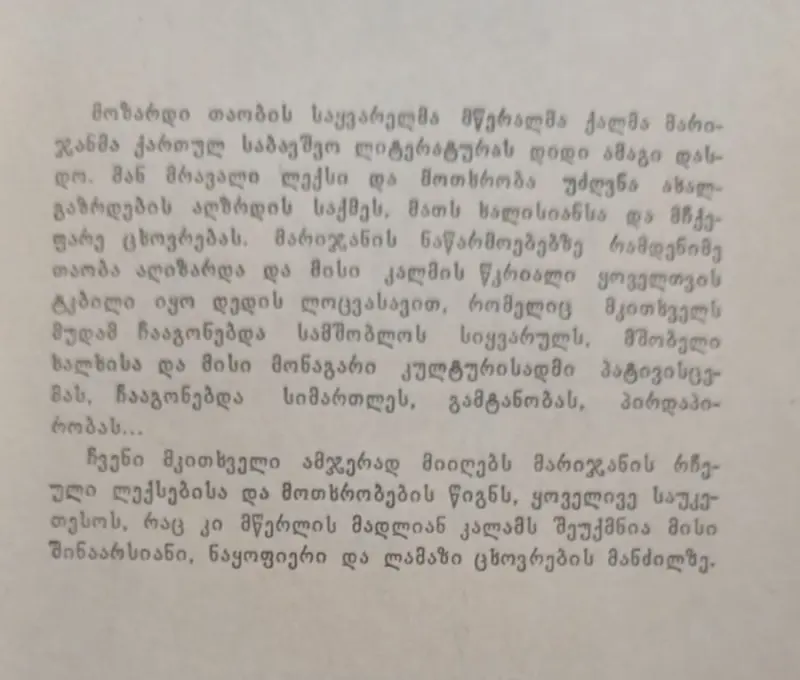 მოზარდი თაობის საყვარელმა მწერალმა ქალმა მარი-
ჯანმა ქართულ საბავშვო ლიტერატურას დიდი ამაგი დას-
დო. მან მრავალი ლექსი და მოთხრობა უძღვნა ახალ-
გაზრდების აღზრდის საქმეს, მათს ხალისიანსა და მჩქე-
ფარე ცხოვრებას. მარიჯანის ნაწარმოებებზე რამდენიმე
თაობა აღიზარდა და მისი კალმის წკრიალი ყოველთვის
ტკბილი იყო დედის ლოცვასავით, რომელიც მკითხველს
მუდამ ჩააგონებდა სამშობლოს სიყვარულს, მშობელი
ხალხისა და მისი მონაგარი კულტურისადმი პატივისცე-
მას, ჩააგონებდა სიმართლეს, გამტანობას, პირდაპი-
რობას...
ჩვენი მკითხველი ამჯერად მიიღებს მარიჯანის რჩე-
ული ლექსებისა და მოთხრობების წიგნს, ყოველივე საუკე-
თესოს, რაც კი მწერლის მადლიან კალამს შეუქმნია მისი
შინაარსიანი, ნაყოფიერი და ლამაზი ცხოვრების მანძილზე.